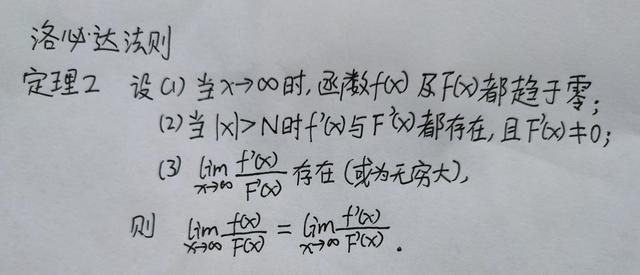 洛必达法则
定理2 设(1)当x→∞时,函数f(x)及F(x)都趋于零;
(2)当|x|>N时f'(x)与F'(x)都存在,且F'(x)≠0;
(3) lim_{x→∞} f'(x)/F'(x) 存在(或为无穷大),
则 lim_{x→∞} f(x)/F(x) = lim_{x→∞} f'(x)/F'(x).